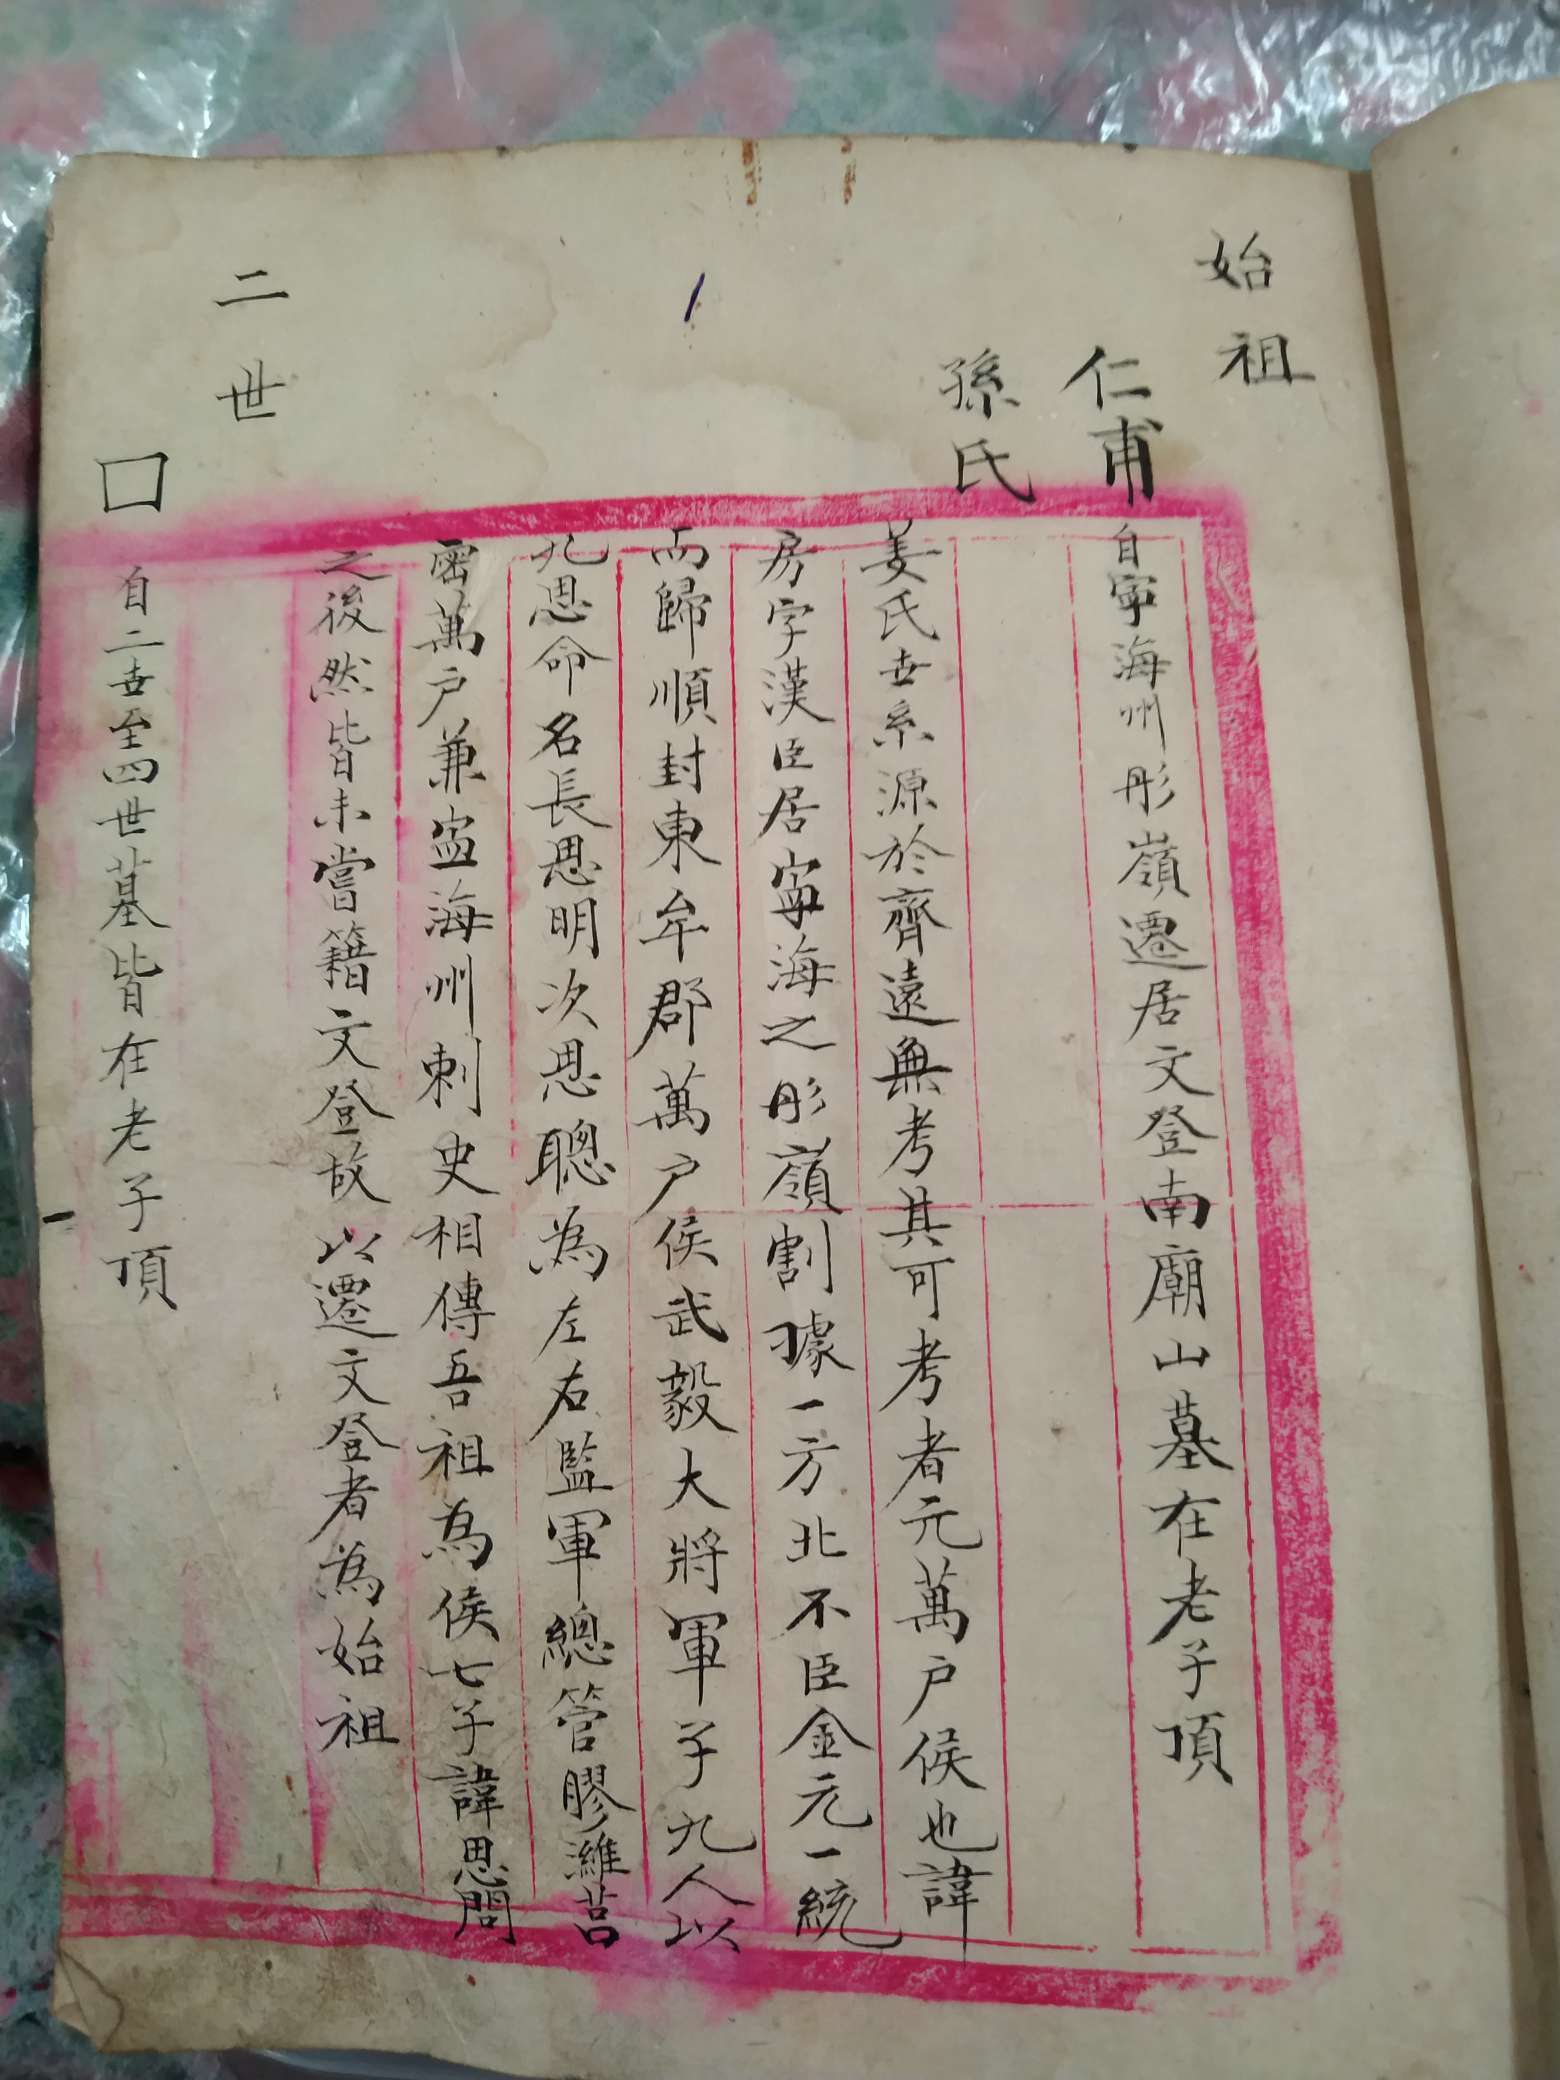 始祖
仁甫
孫氏
自寧海州彤嶺遷居文登南廟山墓在老子頂
姜氏世系源於齊遠無考其可考者元萬户侯也諱
房字漢臣居寧海之彤嶺割據一方北不臣金元一統
而歸順封東牟郡萬户侯武毅大將軍子九人以
九思命名長思明次思聰為左右監軍總管膠濰莒
密萬户兼寧海州刺史相傳吾祖為侯七子諱思問
之後然皆未嘗籍文登故以遷文登者為始祖
二世
囗
自二世至四世墓皆在老子頂